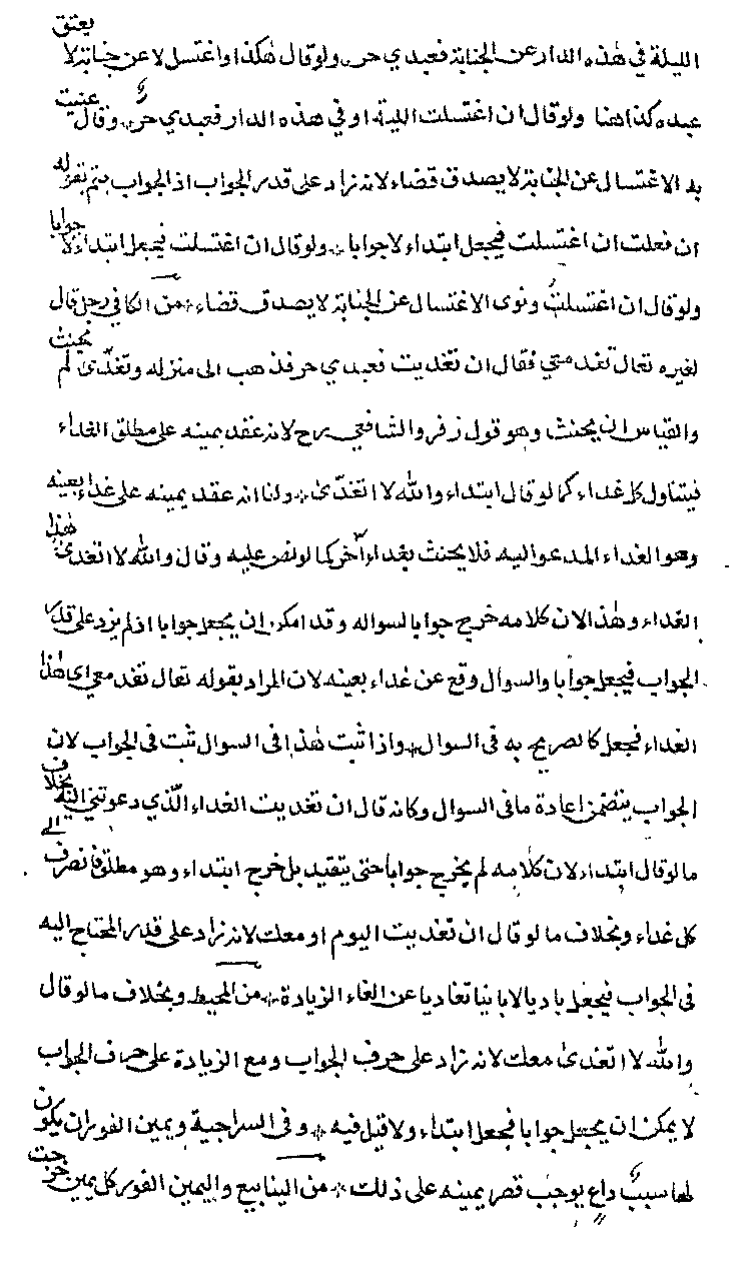 الليلة في هذه الدار عن الجنابة فعبدي حر ولو قال هكذا واغتسل لا عن جنابة لا يعتق
عبده كذا هنا ولو قال ان اغتسلت الليلة او في هذه الدار فعبدي حر وقال عنيت
به الاغتسال عن الجنابة لا يصدق قضاء لانه زاد على قدر الجواب اذ الجواب يتم بقوله
ان فعلت ان اغتسلت فيجعل ابتداء لا جوابا * ولو قال ان اغتسلت فيجعل ابتداء لا جوابا
ولو قال ان اغتسلت ونوى الاغتسال عن الجنابة لا يصدق قضاء * من الكافي رجل قال
لغيره تعال تغد معي فقال ان تغديت فعبدي حر فذهب الى منزله وتغدّى لم يحنث
والقياس ان يحنث وهو قول زفر والشافعي رح لانه عقد يمينه على مطلق الغداء
فيتناول كل غداء كما لو قال ابتداء والله لا اتغدّى * ولنا انه عقد يمينه على غداء بعينه
وهو الغداء المدعو اليه فلا يحنث بغداء آخر كما لو نص عليه وقال والله لا اتغدى هذا
الغداء وهذا لان كلامه خرج جوابا لسواله وقد امكن ان يجعل جوابا اذ لم يزد على قدر
الجواب فيجعل جوابا والسوال وقع عن غداء بعينه لان المراد بقوله تعال تغد معي اي هذا
الغداء فيجعل كالصريح به في السوال * واذا ثبت هذا في السوال ثبت في الجواب لان
الجواب يتضمن اعادة ما في السوال وكانه قال ان تغديت الغداء الّذي دعوتني اليه بخلاف
ما لو قال ابتداء لان كلامه لم يخرج جوابا حتى يتقيد بل خرج ابتداء وهو مطلق فانصرف الى
كل غداء وبخلاف ما لو قال ان تغديت اليوم او معك لانه زاد على قدر المحتاج اليه
في الجواب فيجعل باديا لا بانيا تفاديا عن الغاء الزيادة * من المحيط وبخلاف ما لو قال
والله لا اتغدى معك لانه زاد على حرف الجواب ومع الزيادة على حرف الجواب
لا يمكن ان يجعل جوابا فجعل ابتداء ولا قيد فيه * وفي السراجية ويمين الفور ان يكون
لها سببٌ داعٍ يوجب قصر يمينه على ذلك * من الينابيع واليمين الفور كل يمين خرجت